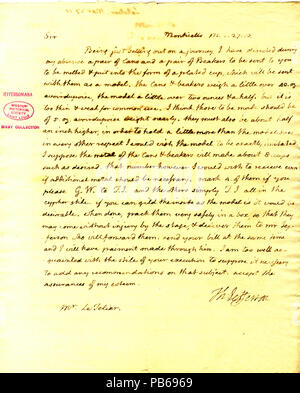 Sir Monticello Mar. 27. 10.
Being just setting out on a journey, I have directed during
my absence a pair of Cans and a pair of Beakers to be sent to you
to be melted & put into the form of a plated cup, which will be sent
with them as a model. the Cans & beakers weigh a little over 40. oz
avoirdupoise, the model a little over two ounces & a half, but it is
too thin & weak for common use. I think those to be made should be
of 5. oz. avoirdupoise weight exactly. they must also be about half
an inch higher, in order to hold a little more than the model does.
in every other respect I would wish the model to be exactly imitated.
I suppose the metal of the Cans & beakers will make about 8 cups
such as desired. that number however I wish to receive even
if additional metal should be necessary. mark 4. of them if you
please G. W. to T. J. and the others simply T. J. all in the
cypher stile. if you can gild the insides as the model is it would be
desirable. when done, pack them very safely in a box so that they
may come without injury by the stage, & deliver them to mr Jef-
ferson who will forward them. send your bill at the same time
and I will have payment made through him. I am too well ac-
quainted with the stile of your execution to suppose it necessary
to add any recommendations on that subject. accept the
assurances of my esteem.
Th: Jefferson
Mr Letelier.
JEFFERSONIANA
MISSOURI
HISTORICAL
SOCIETY
BIXBY COLLECTION
alamy
Image ID: PB6969
www.alamy.com